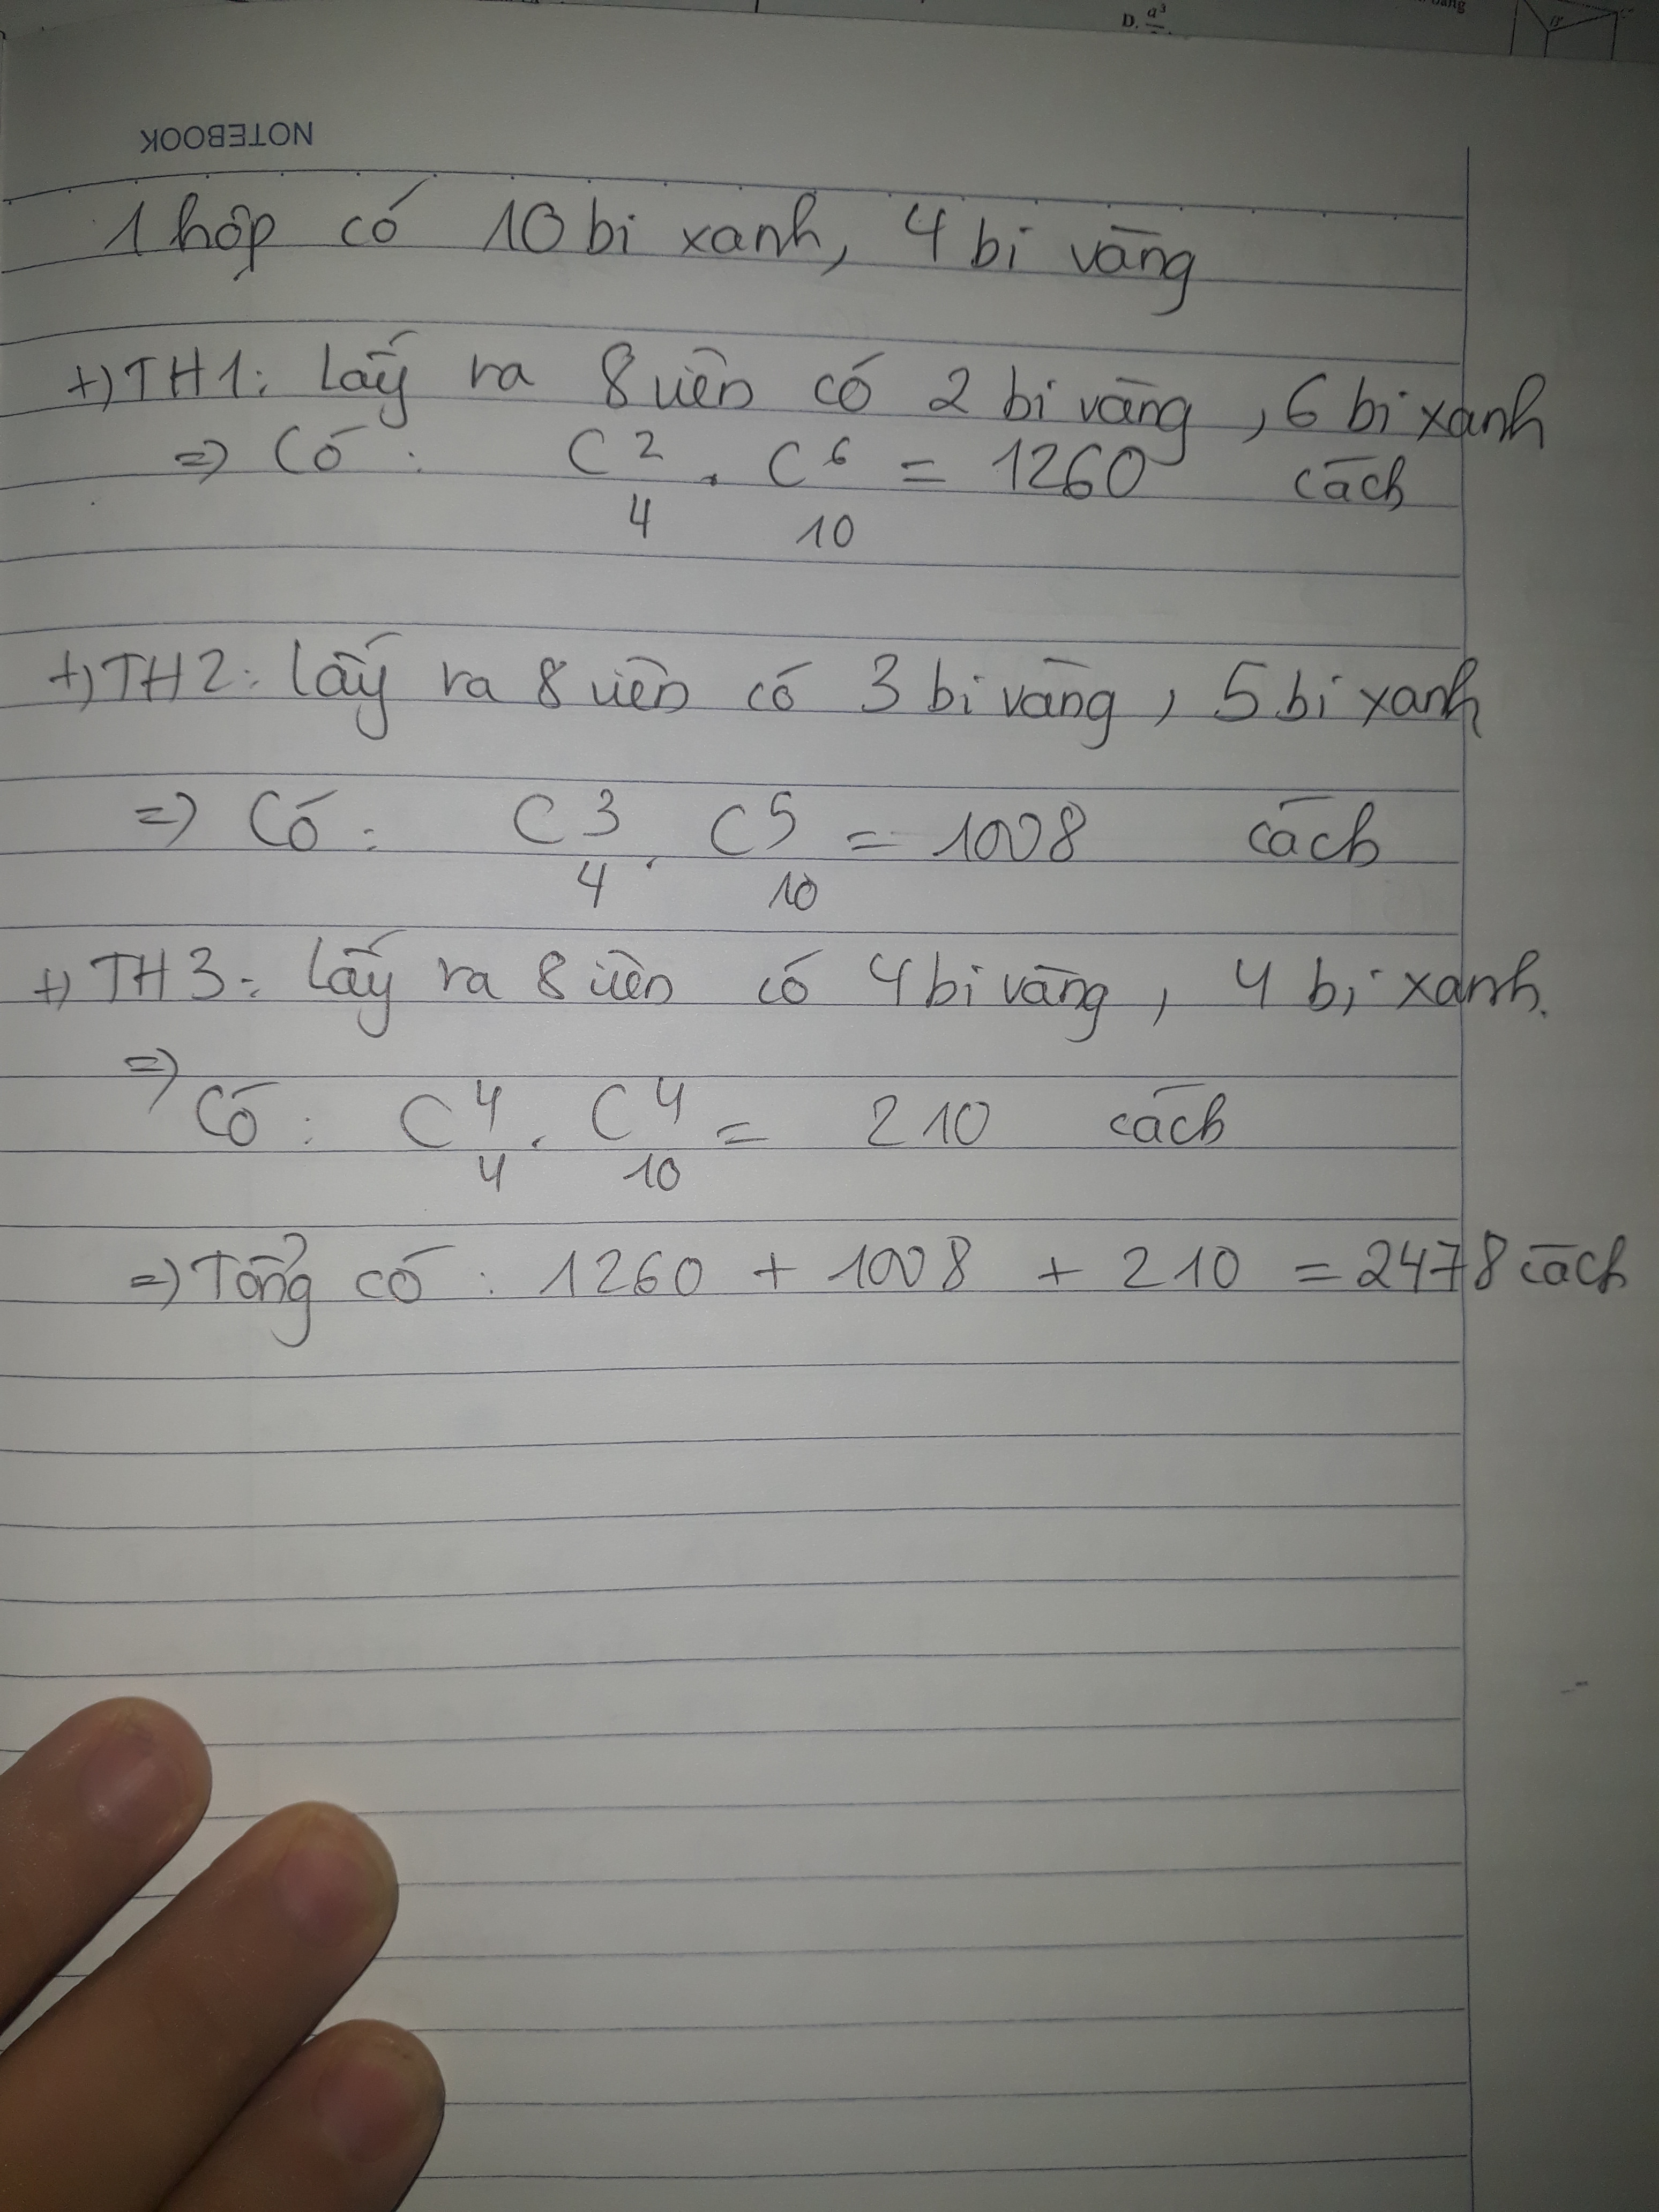 D. a³
NOTEBOOK
1 hộp có 10 bi xanh, 4 bi vàng
+) TH1: Lấy ra 8 viên có 2 bi vàng, 6 bi xanh
=> Có : C²₄ . C⁶₁₀ = 1260 cách
+) TH2: Lấy ra 8 viên có 3 bi vàng, 5 bi xanh
=> Có : C³₄ . C⁵₁₀ = 1008 cách
+) TH3: Lấy ra 8 viên có 4 bi vàng, 4 bi xanh.
=> Có : C⁴₄ . C⁴₁₀ = 210 cách
=> Tổng có : 1260 + 1008 + 210 = 2478 cách